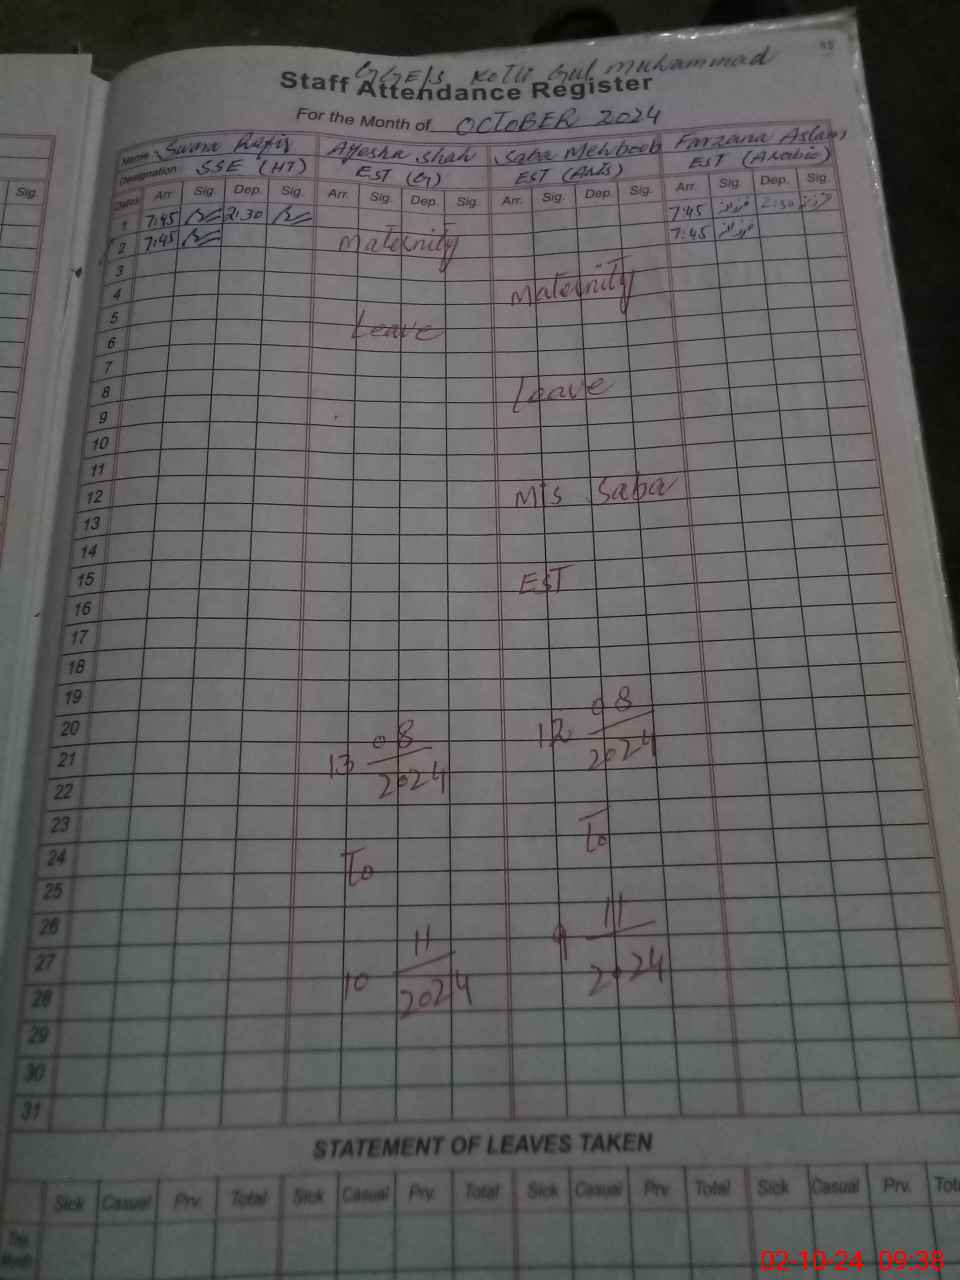 45
GGE/S Kotli Gul Muhammad
Staff Attendance Register
For the Month of OCTOBER 2024
Name Ayesha Shah Saba Mehboob Farzana Aslam
Designation SSE (HT) EST (G) EST (Arts) EST (Arabic)
Sig. Dates Arr. Sig. Dep. Sig. Arr. Sig. Dep. Sig. Arr. Sig. Dep. Sig. Arr. Sig. Dep. Sig.
1 7:45 2:30 7:45 فرزانہ 2:30 فرزانہ
2 7:45 Maternity 7:45 فرزانہ
3
4 Maternity
5 Leave
6
7
8 Leave
9
10
11
12 M/s Saba
13
14
15 EST
16
17
18
19
20 12 08/2024
21 13 08/2024
22
23 To
24 To
25
26 9 11/2024
27 10 11/2024
28
29
30
31
STATEMENT OF LEAVES TAKEN
Sick Casual Prv. Total Sick Casual Prv. Total Sick Casual Prv. Total Sick Casual Prv. Tot
This Month
02-10-24 09:38